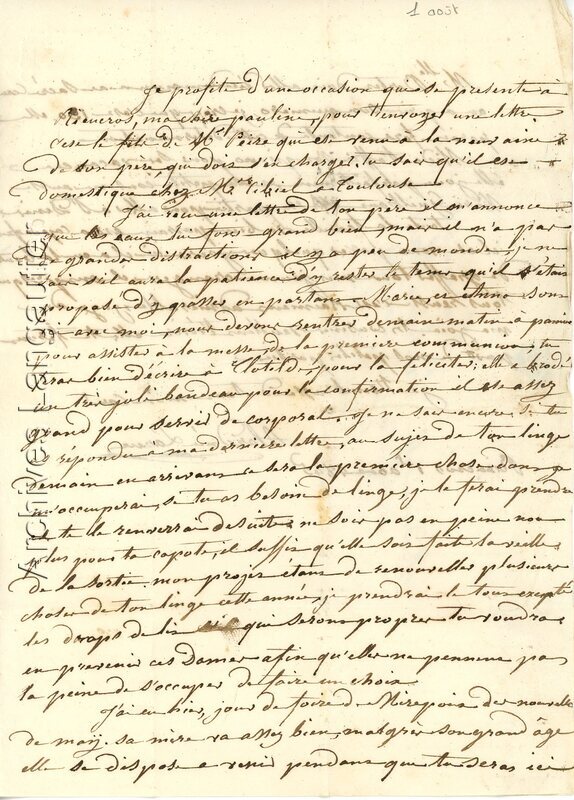 1 août
Je profite d'une occasion qui se présente à
Rieucros, ma chère pauline, pour t'envoyer une lettre
c'est le fils de Mr Peire qui est venu à la neuvaine
de son père, qui doit s'en charger. tu sais qu'il est
domestique chez Mr à Toulouse
J'ai reçu une lettre de ton père il m'annonce
que les eaux lui font grand bien, mais il n'a pas
de grandes distractions il y a peu de monde, je ne
sais s'il aura la patience d'y rester le tems qu'il s'étais
proposé d'y passer en partant. Marie, et Anna sont
ici avec moi, nous devons rentrer demain matin à pamiers
pour assister à la messe de la première communion, tu
feras bien d'écrire à Clotilde, pour la féliciter, elle a brodé
un très joli bandeau pour la confirmation il est assez
grand pour servir de corporal. je ne sais encore si tu
a répondu a ma dernière lettre, au sujet de ton linge
demain en arrivant ce sera la première chose dont je
m'occuperai, si tu as besoin de linge, je le ferai prendre
et te le renverrai desuite, ne sois pas en peine non
plus pour ta capote, il suffit qu'elle soit faite la veille
de la sortie. mon projet étant de renouveller plusieurs
choses de ton linge cette année, je prendrai le tout excepté
les draps de lit que seront propres tu voudras
en prévenir ces Dames afin qu'elles ne prennent pas
la peine de s'occuper de faire un choix
J'ai eu hier, jour de foire de Mirepoix des nouvelles
de sa mère va assez bien, malgrés son grand âge
elle se dispose a venir pendant que tu seras ici
Archives Lancaufier